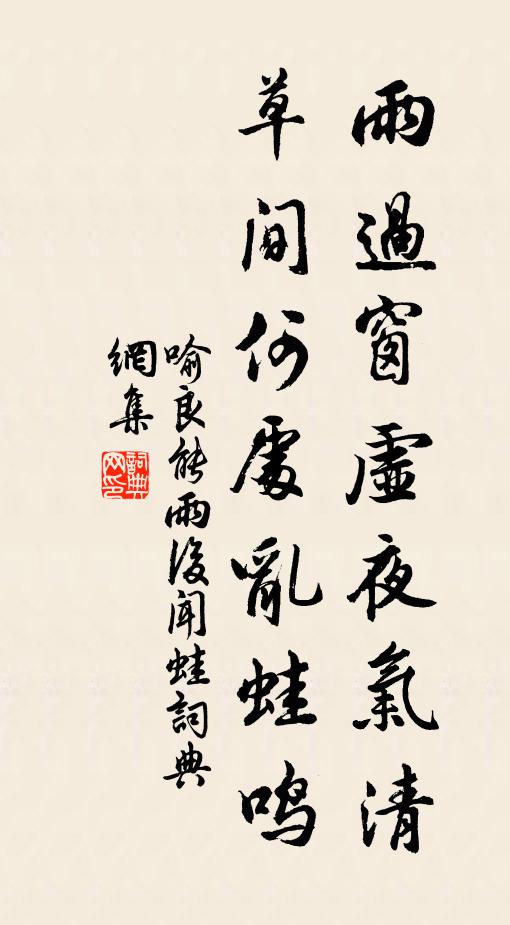 雨過窗虛夜氣清
草間何處亂蛙鳴
喻良能雨後聞蛙詞典
網集
詞典網印